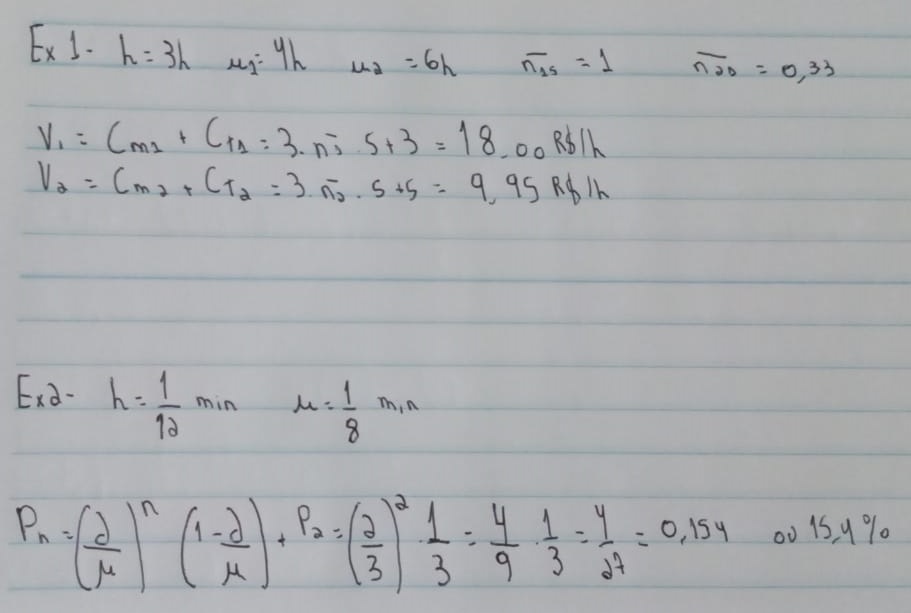 Ex 1- h = 3h μ1 = 4h μ2 = 6h n̅15 = 1 n̅20 = 0,33
V1 = Cm1 + CT1 = 3. n̅1 . 5+3 = 18,00 R$/h
V2 = Cm2 + CT2 = 3. n̅2 . 5+5 = 9,95 R$/h
Ex2- h = 1/12 min μ = 1/8 min
Pn = (2/μ)^n (1-2/μ) + P2 = (2/3)^2 . 1/3 = 4/9 . 1/3 = 4/27 = 0,154 ou 15,4%